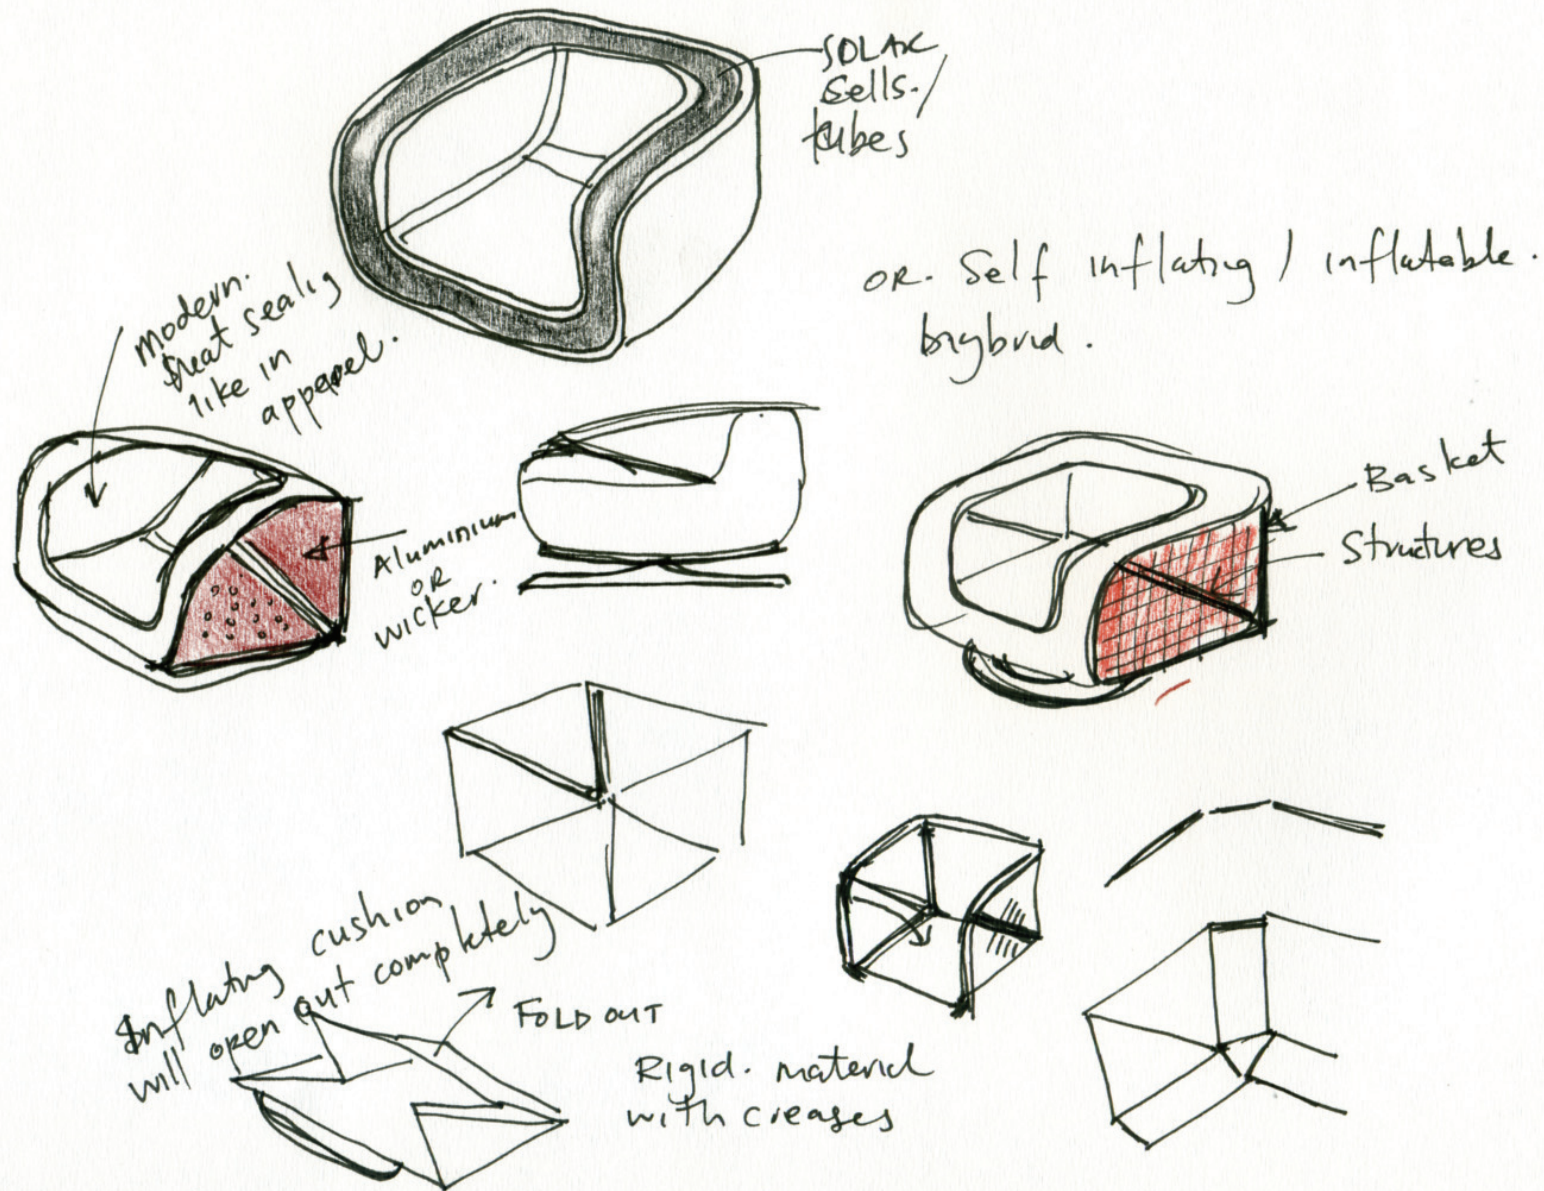 SOLAR
Sells./
tubes
OR. Self inflating / inflatable.
hybrid.
modern.
heat sealig
like in
apparel.
Aluminium
OR
wicker.
Basket
Structures
Inflating cushion
will open out completely
FOLD OUT
Rigid. material
with creases